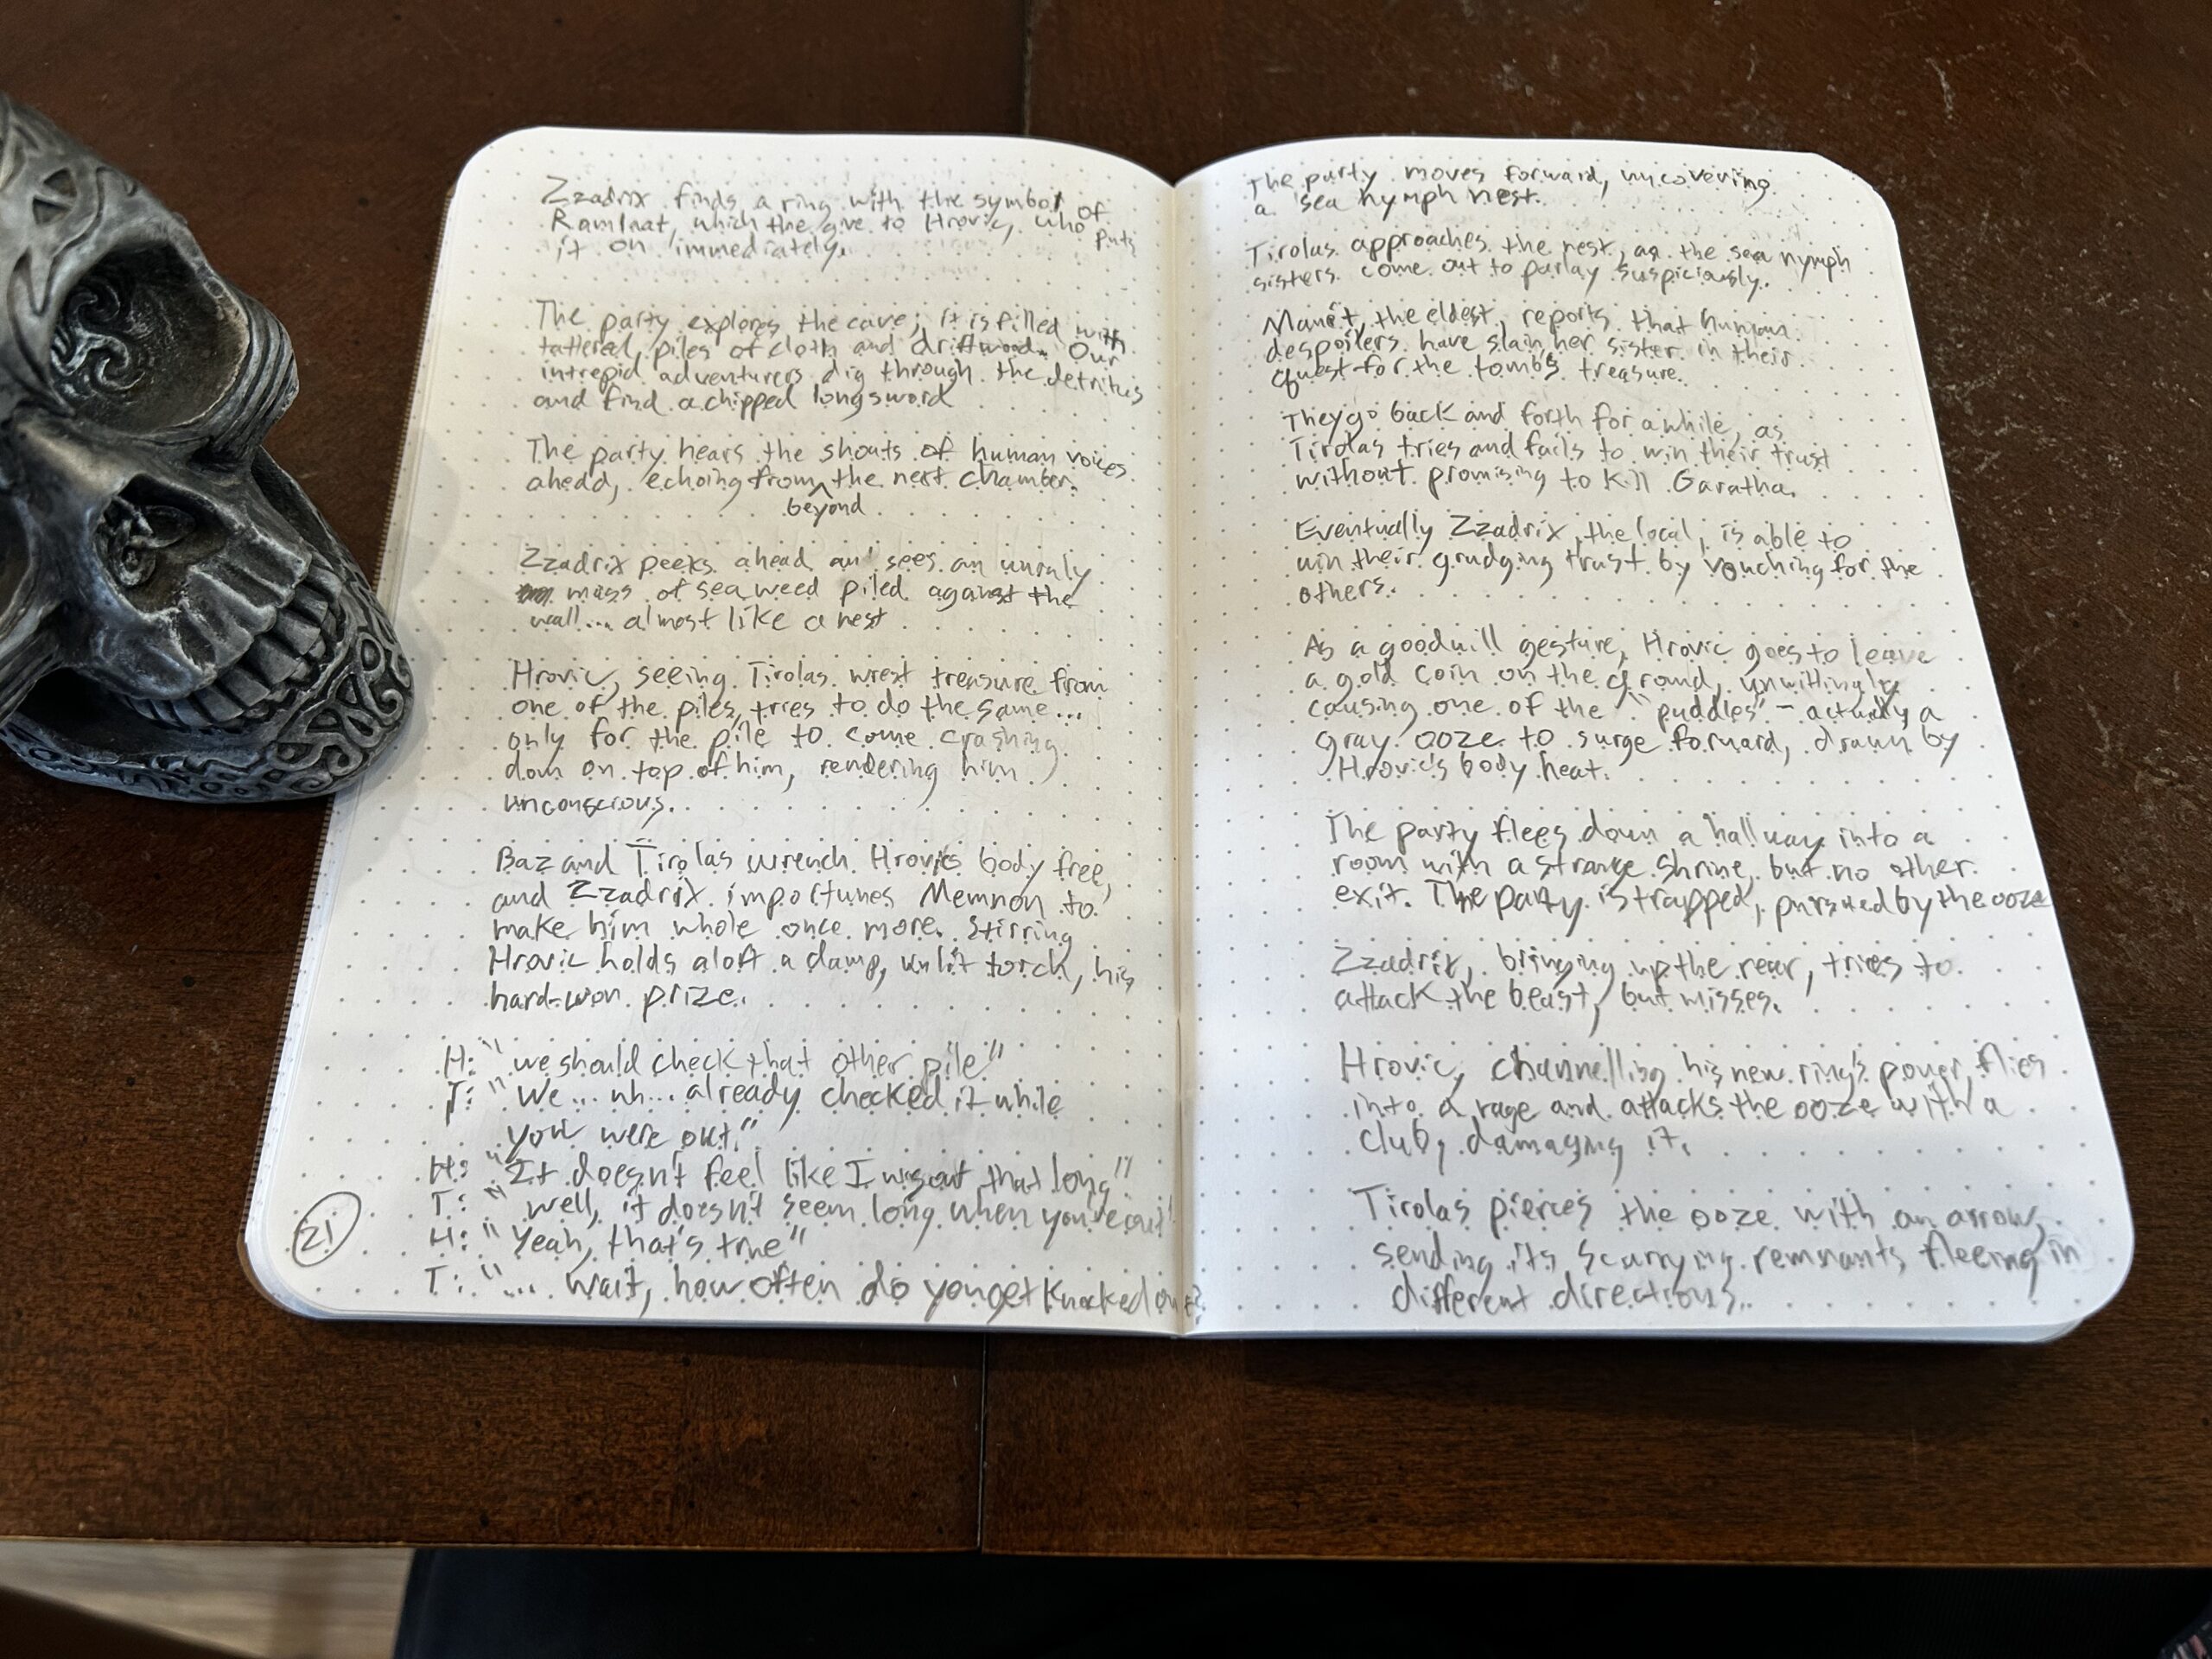 Zzadrix finds a ring with the symbol of
Ramlaat, which the give to Hrovic, who puts
it on immediately.
The party explores the cave; it is filled with
tattered piles of cloth and driftwood. Our
intrepid adventurers dig through the detritus
and find a chipped longsword
The party hears the shouts of human voices
ahead, echoing from the next chamber.
beyond
Zzadrix peeks ahead and sees an unruly
mass of seaweed piled against the
wall... almost like a nest
Hrovic, seeing Tirolas wrest treasure from
one of the piles, tries to do the same...
only for the pile to come crashing
down on top of him, rendering him
unconscious.
Baz and Tirolas wrench Hrovic's body free,
and Zzadrix importunes Memnon to
make him whole once more. Stirring
Hrovic holds aloft a damp, unlit torch, his
hard-won prize.
H: "we should check that other pile"
T: "We... uh... already checked it while
you were out."
H: "It doesn't feel like I was out that long"
T: "well, it doesn't seem long when you're out"
H: "Yeah, that's true"
T: "... wait, how often do you get knocked out?
21
The party moves forward, uncovering
a sea nymph nest.
Tirolas approaches the nest, as the sea nymph
sisters come out to parlay suspiciously.
the eldest, reports that human
despoilers have slain her sister in their
quest for the tomb's treasure.
They go back and forth for awhile, as
Tirolas tries and fails to win their trust
without promising to kill Garatha.
Eventually Zzadrix, the local, is able to
win their grudging trust by vouching for the
others.
As a goodwill gesture, Hrovic goes to leave
a gold coin on the ground, unwittingly
causing one of the "puddles" - actually a
gray ooze to surge forward, drawn by
Hrovic's body heat.
The party flees down a hallway into a
room with a strange shrine, but no other
exit. The party is trapped, pursued by the ooze
Zzadrix, bringing up the rear, tries to
attack the beast, but misses.
Hrovic, channelling his new ring's power, flies
into a rage and attacks the ooze with a
club, damaging it.
Tirolas pierces the ooze with an arrow,
sending its scurrying remnants fleeing in
different directions.